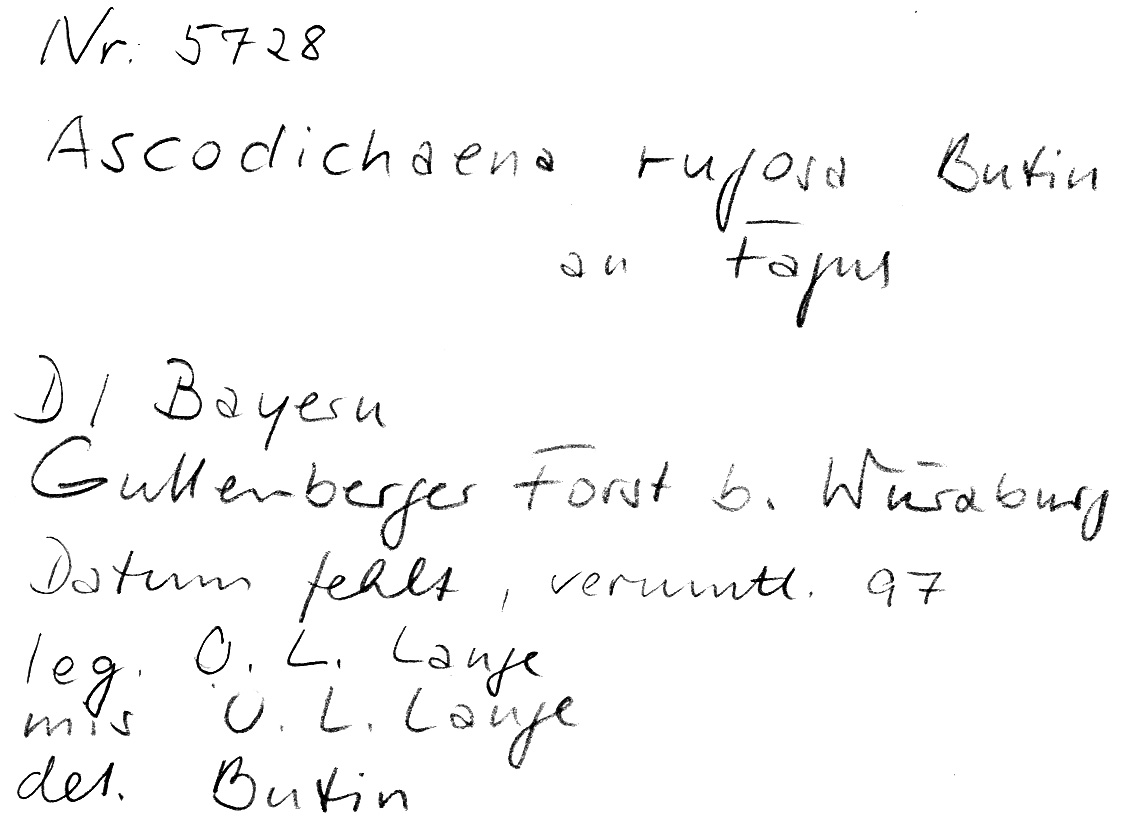 Nr. 5728
Ascodichaena rugosa Butin
an Fagus
D/ Bayern
Guttenberger Forst b. Würzburg
Datum fehlt, vermutl. 97
leg. O. L. Lange
mis O. L. Lange
det. Butin